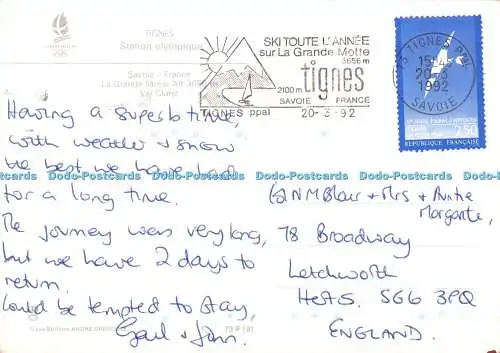 TIGNES
Station olympique
Savoie - France
La Grande Motte Alt 3656 m
Val Claret
ALBERTVILLE
SKI TOUTE L'ANNÉE
sur La Grande Motte
3656 m
tignes
2100 m
SAVOIE FRANCE
TIGNES ppal
20-3-92
73 TIGNES PPAL
20-3
1992
SAVOIE
2,50
REPUBLIQUE FRANÇAISE
Having a superb time,
with weather + snow
the best we have had
for a long time.
The journey was very long,
but we have 2 days to
return.
Could be tempted to stay,
Gail + John.
N M Blair + Mrs + Auntie
Margorite,
78 Broadway
Letchworth
Herts. SG6 3PQ
ENGLAND.
Les Editions ANDRE GRENOBLE
73 P 181
Dodo-Postcards Dodo-Postcards Dodo-Postcards Dodo-Postcards Dodo-Postcards